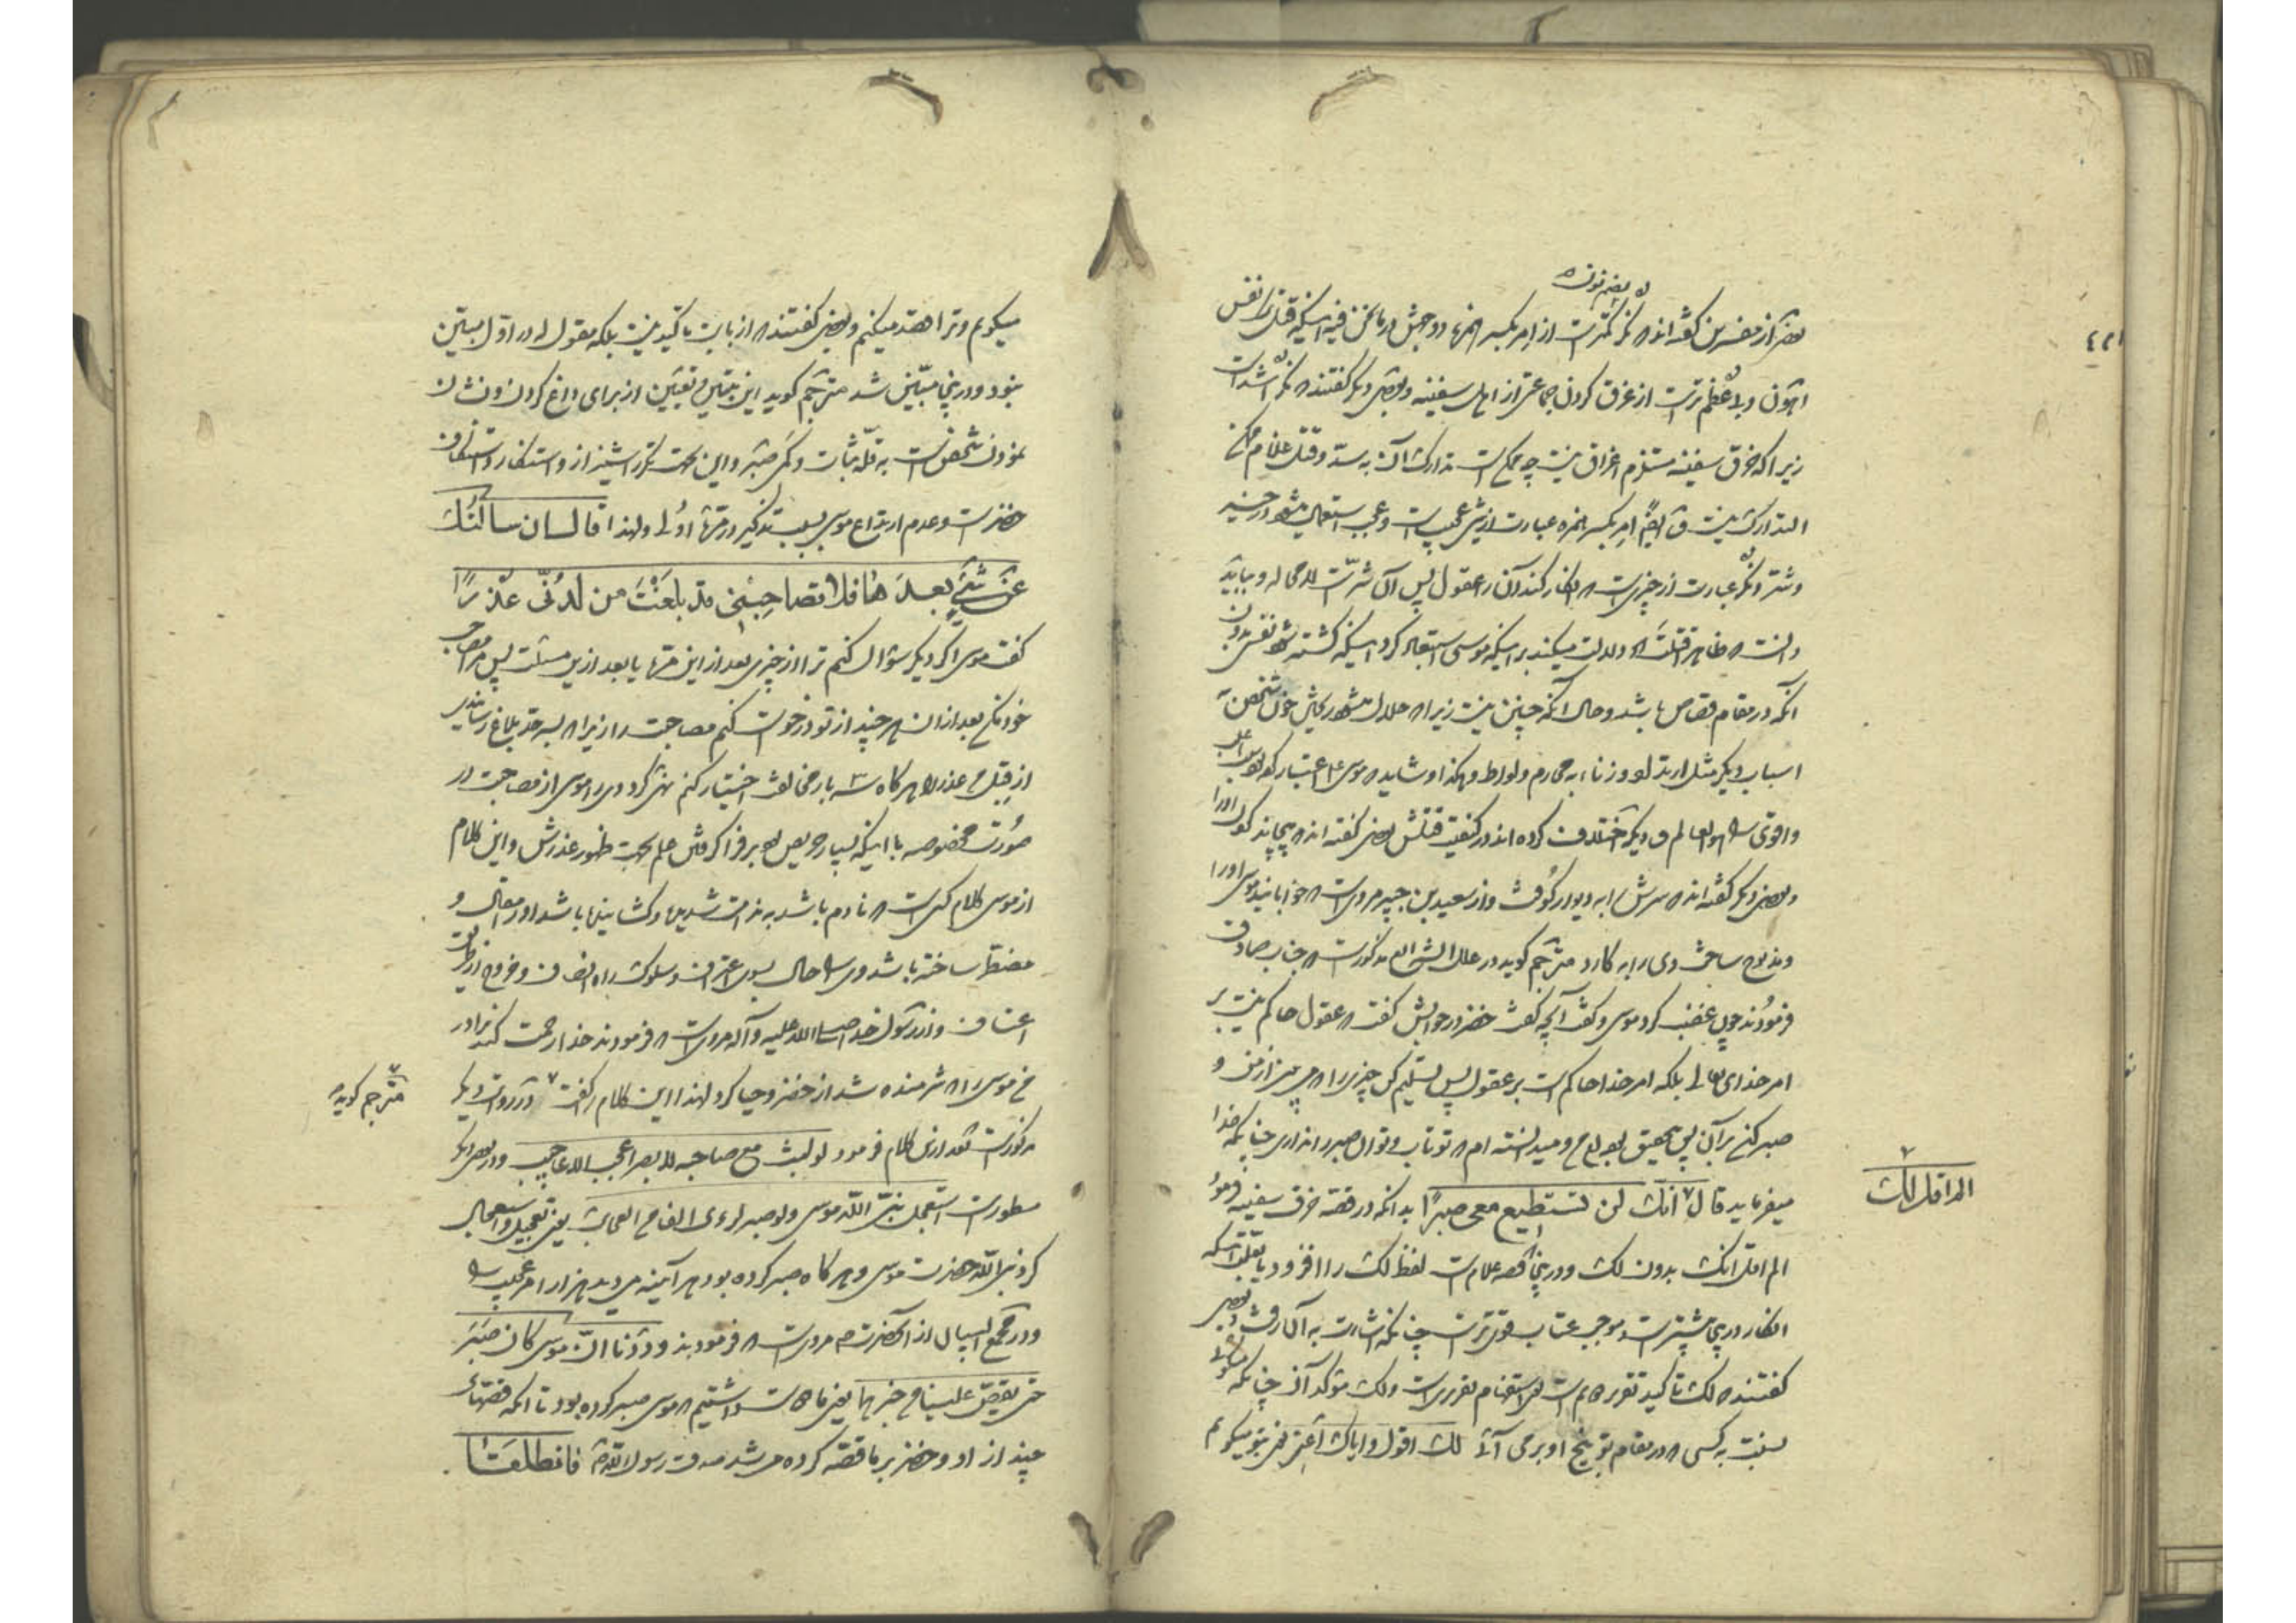 بضم نون
بعضی از مفسرین گفته‌اند که نکر کمتر است از امر بکسر همزه
اهون و بلا عظم‌تر است از غرق کردن جماعتی از اهل سفینه و بعضی دیگر گفتند که نکر اشد است
زیرا که خرق سفینه مستلزم اغراق نیست چه ممکن است تدارک آن به سد و قتل غلام ممکن
التدارک نیست ایضا امر بکسر همزه عبارت از شئ عجیب است و عجب استعمال میشود در خیر
و شر و نکر عبارت از چیزی است که انکار کند آن را عقول پس آن شر است لا محاله و بباید
دانست که ظاهر اقتلت که دلالت میکند بر اینکه موسی استبعاد کرد اینکه کشته شود نفس بدون
آنکه در مقام قصاص باشد و حال آنکه چنین نیست زیرا که حلال میشود ریختن خون شخص به
اسباب دیگر مثل ارتداد و زناء به محارم و لواط و هکذا و شاید که موسی اعتبار کرد
واقوی و الله العالم و دیگر اختلاف کرده‌اند در کیفیت قتلش بعضی گفته‌اند که پیچاند گلوی او را
و بعضی دیگر گفته‌اند که سرش را به دیوار کوفت و از سعید بن جبیر مرویست که خوابانید او را
و مذبوح ساخت وی را به کارد مترجم گوید در علل الشرایع مذکور است که جناب صادق
فرمودند چون غضب کرد موسی و گفت آنچه گفت خضر در جوابش گفت که عقول حاکم نیست بر
امر خدای تعالی بلکه امر خدا حاکم است بر عقول پس تسلیم کن چیزی را که می‌بینی از من و
صبر کن بر آن پس تحقیق بودم و میدانسته‌ام که تو تاب و توان صبر را نداری چنانکه خدا
میفرماید قال انک لن تستطیع معی صبرا بدانکه در قصه خرق سفینه فرمود
الم اقل انک بدون لک و درین قصه غلام است لفظ لک را افزود باعتبار اینکه
انکار درین بیشتر است و موجب عتاب قوی‌تر است چنانکه اشارت به آن رفت و بعضی
گفتند که لک تاکید تقریر است استفهام تقریری است و لک موکد آن چنانکه
نسبت به کسی که در مقام توبیخ او برمی‌آئی لک اقول و ایاک اعنی یعنی بتو میگویم
الم اقل لک
میگویم و ترا قصد میکنم و بعضی گفتند که از باب تاکید نیست بلکه مقول له در اول مبین
نبود و درین مبین شد مترجم گوید این تبیین و تعیین از برای داغ کردن و نشان
نمودن شخص است به قلة ثبات و کمی صبر و این بجهت تکرر اشمئزاز و استنکار و استنکاف
حضرت و عدم ارتداع موسی بسبب تذکیر در مرتبه اولی و لهذا قال ان سالتک
عن شئ بعدها فلا تصاحبنی قد بلغت من لدنی عذرا
گفت موسی اگر دیگر سؤال کنم ترا از چیزی بعد از این مرتبه یا بعد ازین مسئلت پس مرا مصاحب
خود مکن بعد از آن هر چند از تو درخواست کنم مصاحبت را زیرا که بسر حد بلاغ رسانیدی
از قبل من عذر را هرگاه سه بار مخالفت اختیار کنم نهی کرد وی را موسی از مصاحبت در
صورت مخصوصه با اینکه بسیار حریص بود بر فرا گرفتن علم بجهت ظهور عذرش و این کلام
از موسی کلام کسی است که نادم باشد به ندامت شدیده
مضطر ساخته باشد وی را حال بسوی اعتراف و سلوک راه انصاف و خروج از طریق
اعتساف و از رسول خدا صلی الله علیه و آله مرویست که فرمودند خدا رحمت کند برادر
من موسی را که شرمنده شد از خضر و حیا کرد لهذا این کلام را گفت در روایت دیگر
مترجم گوید
مذکور است بعد ازین کلام فرمود لو لبث مع صاحبه لابصر اعجب الاعاجیب و در بعضی دیگر
مسطور است استعجل نبی الله موسی و لو صبر لرءی الفا من العجایب یعنی تعجیل و استعجال
کرد نبی الله حضرت موسی و هرگاه صبر کرده بود هر آینه می‌دید هزار امر عجیب را
و در مجمع البیان از آنحضرت ص مرویست که فرمودند وددنا ان موسی کان صبر
حتی یقص علینا من خبرهما یعنی ما دوست داشتیم که موسی صبر کرده بود تا آنکه قصه‌های
چند از او و خضر بر ما قصه کرده می‌شد صدق رسول الله فانطلقا